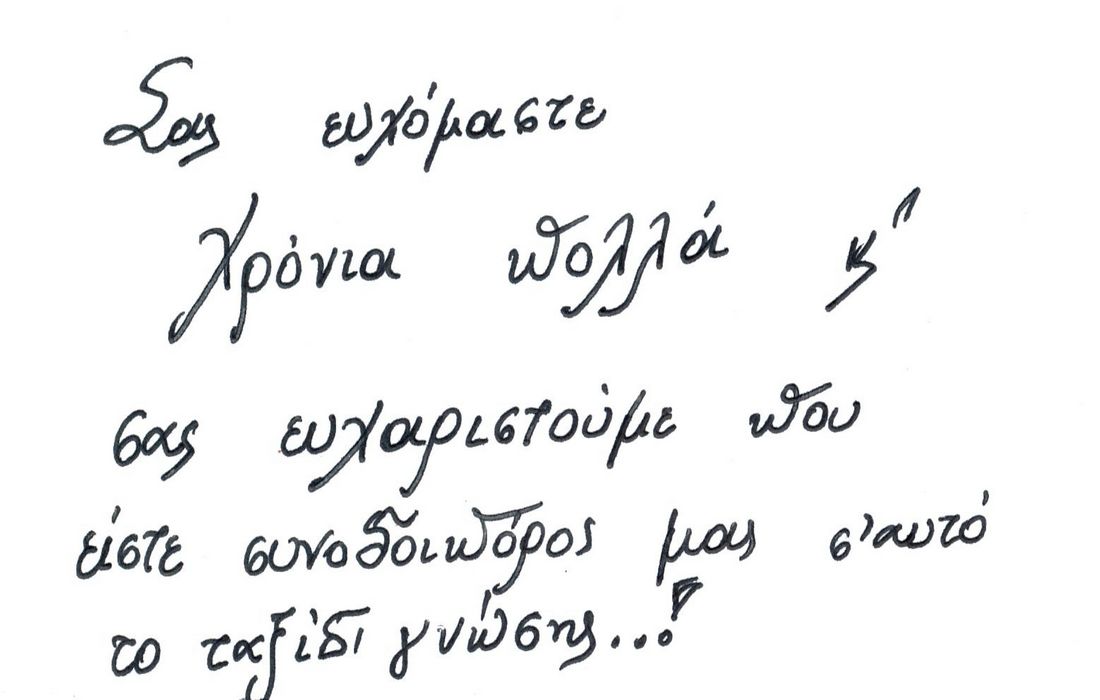 Σας ευχόμαστε
Χρόνια πολλά κ'
σας ευχαριστούμε που
είστε συνοδοιπόρος μας σ'αυτό
το ταξίδι γνώσης...!